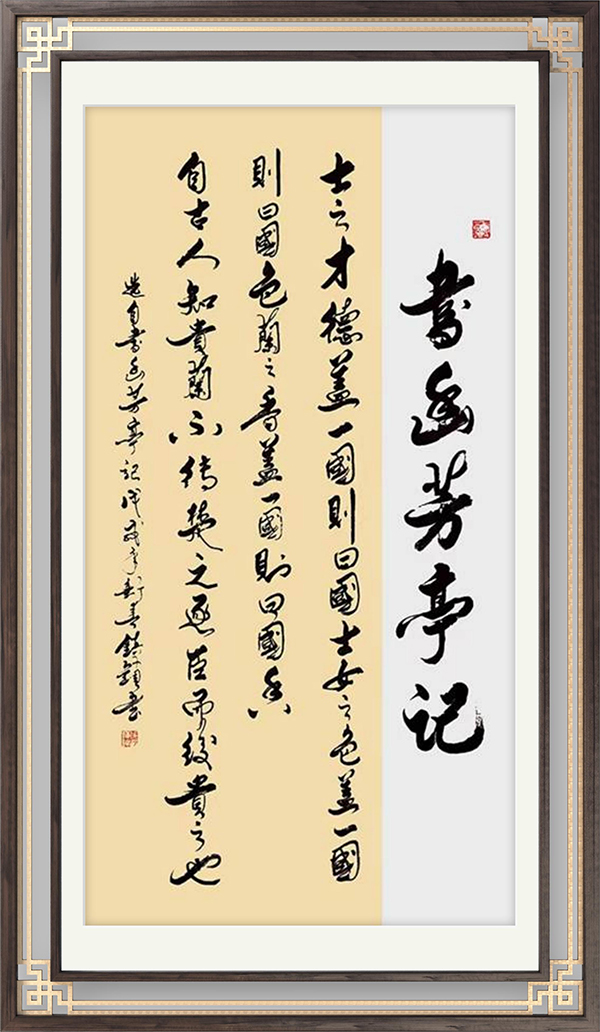 書幽芳亭记
士之才德蓋一國則曰國士女之色蓋一國
則曰國色蘭之香蓋一國則曰國香
自古人知貴蘭不待楚之逐臣而後貴之也
選自書幽芳亭记戊戌年新春鎮穎書